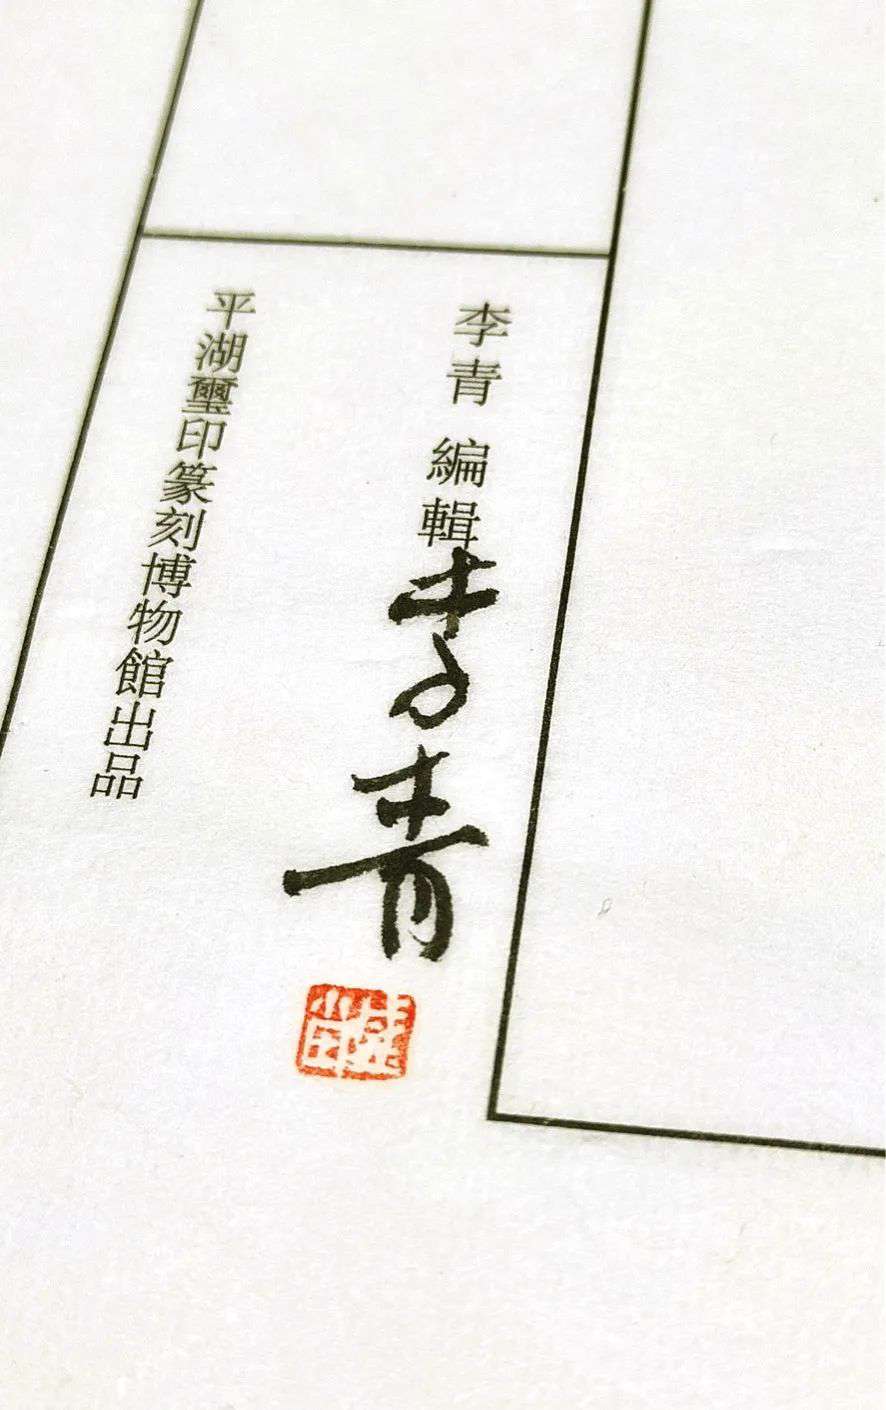 李青 編輯
李青
平湖璽印篆刻博物館出品